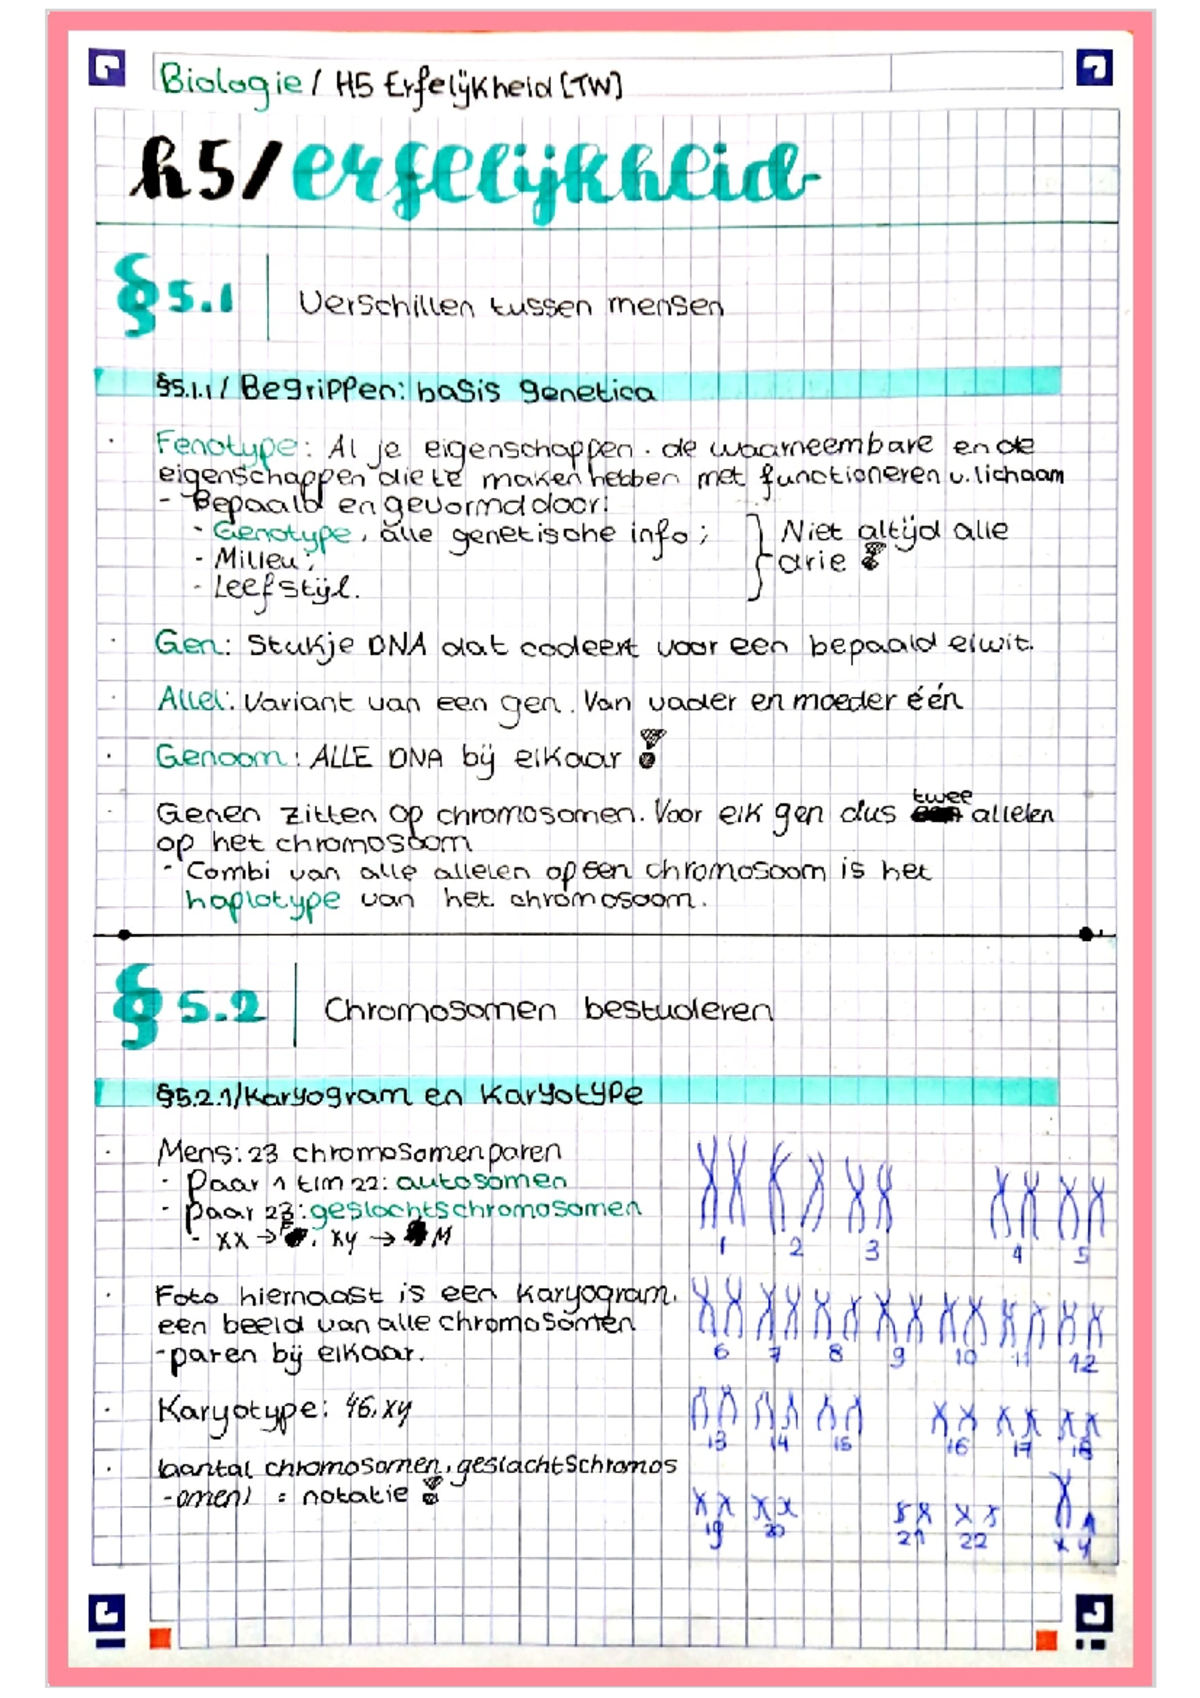 Biologie / H5 Erfelijkheid [TW]
h5/erfelijkheid
§5.1 Verschillen tussen mensen
§5.1.1 / Begrippen: basis genetica
· Fenotype: Al je eigenschappen. de waarneembare en de
eigenschappen die te maken hebben met functioneren v. lichaam
- Bepaald en gevormd door:
- Genotype, alle genetische info; } Niet altijd alle
- Milieu; drie !
- Leefstijl.
· Gen: Stukje DNA dat codeert voor een bepaald eiwit.
· Allel: Variant van een gen. Van vader en moeder één
· Genoom: ALLE DNA bij elkaar !
twee
· Genen zitten op chromosomen. Voor elk gen dus allelen
op het chromosoom
- Combi van alle allelen op een chromosoom is het
haplotype van het chromosoom.
§5.2 Chromosomen bestuderen
§5.2.1/Karyogram en Karyotype
· Mens: 23 chromosomenparen
- Paar 1 t/m 22: autosomen
- paar 23: geslachtschromosomen
- XX → F, XY → M
1 2 3 4 5
· Foto hiernaast is een Karyogram.
een beeld van alle chromosomen
-paren bij elkaar.
6 7 8 9 10 11 12
· Karyotype: 46,xy
13 14 15 16 17 18
· (aantal chromosomen, geslachtschromos
-omen) = notatie !
19 20 21 22 x y